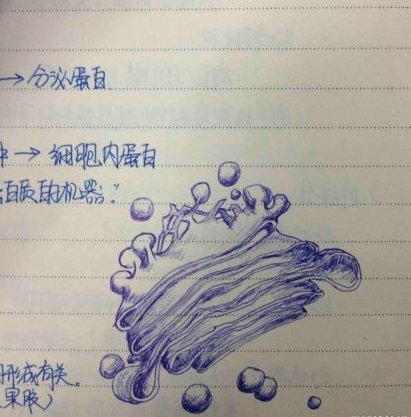 → 分泌蛋白
中 → 细胞内蛋白
白质的机器."
形成有关。
果胶）